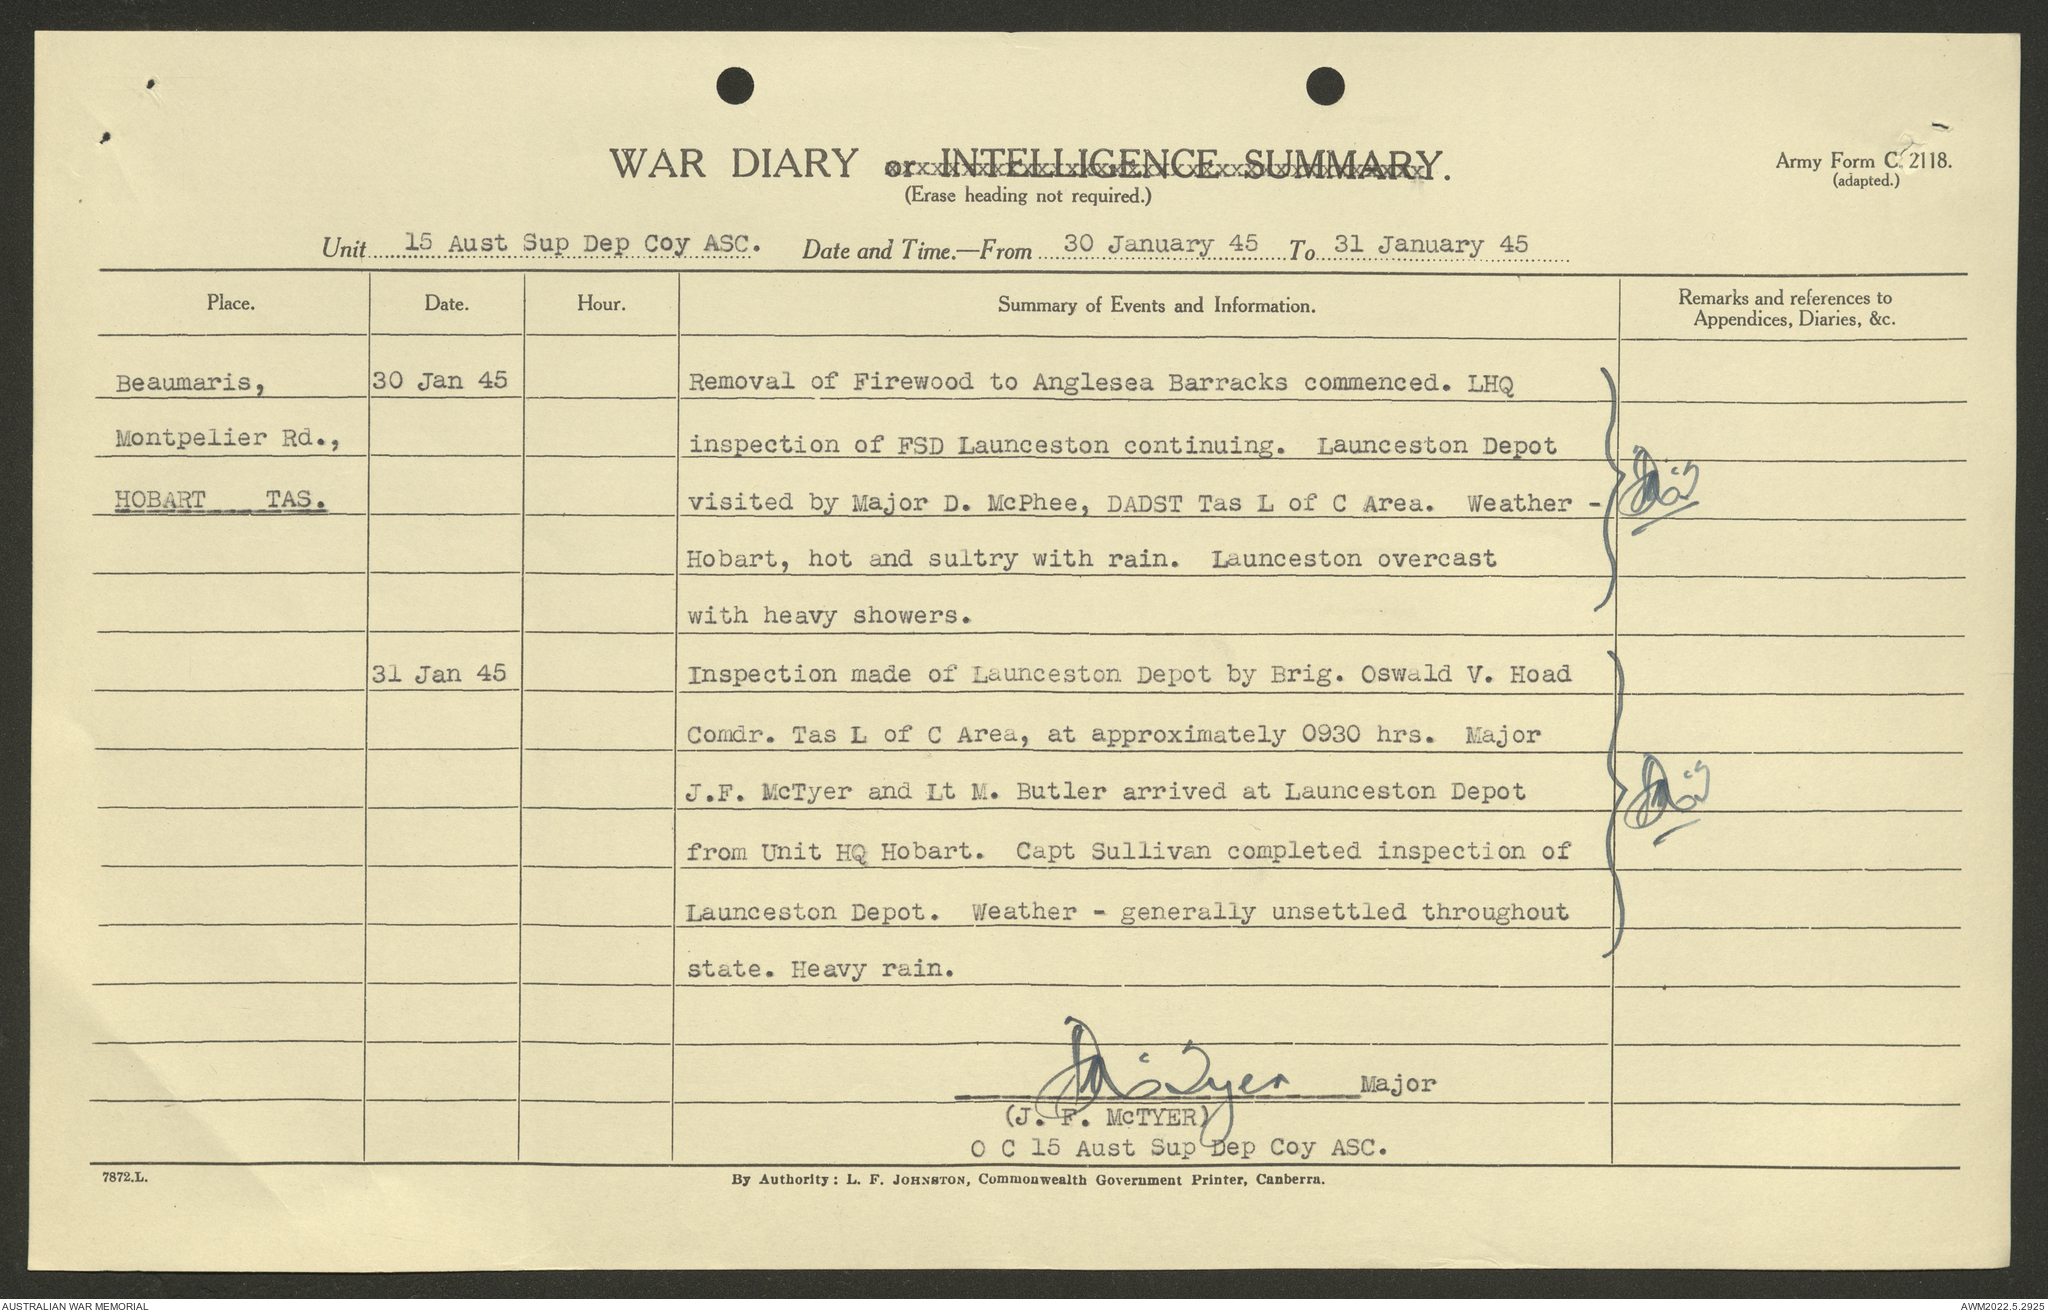 WAR DIARY or INTELLIGENCE SUMMARY.
(Erase heading not required.)
Army Form C. 2118.
(adapted.)
Unit 15 Aust Sup Dep Coy ASC. Date and Time.—From 30 January 45 To 31 January 45
Place. Date. Hour. Summary of Events and Information. Remarks and references to
Appendices, Diaries, &c.
Beaumaris, 30 Jan 45 Removal of Firewood to Anglesea Barracks commenced. LHQ
Montpelier Rd., inspection of FSD Launceston continuing. Launceston Depot
HOBART TAS. visited by Major D. McPhee, DADST Tas L of C Area. Weather -
Hobart, hot and sultry with rain. Launceston overcast
with heavy showers.
31 Jan 45 Inspection made of Launceston Depot by Brig. Oswald V. Hoad
Comdr. Tas L of C Area, at approximately 0930 hrs. Major
J.F. McTyer and Lt M. Butler arrived at Launceston Depot
from Unit HQ Hobart. Capt Sullivan completed inspection of
Launceston Depot. Weather - generally unsettled throughout
state. Heavy rain.
Major
(J. F. McTYER)
O C 15 Aust Sup Dep Coy ASC.
7872.L.
By Authority: L. F. JOHNSTON, Commonwealth Government Printer, Canberra.
AUSTRALIAN WAR MEMORIAL
AWM2022.5.2925